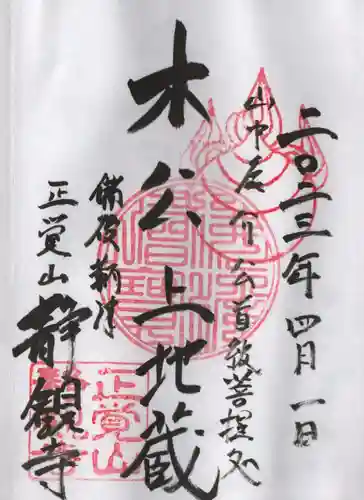 二〇二三年四月一日
山中鹿介公首級菩提処
木公上地蔵
備後鞆津
正覚山
静觀寺
正覚山